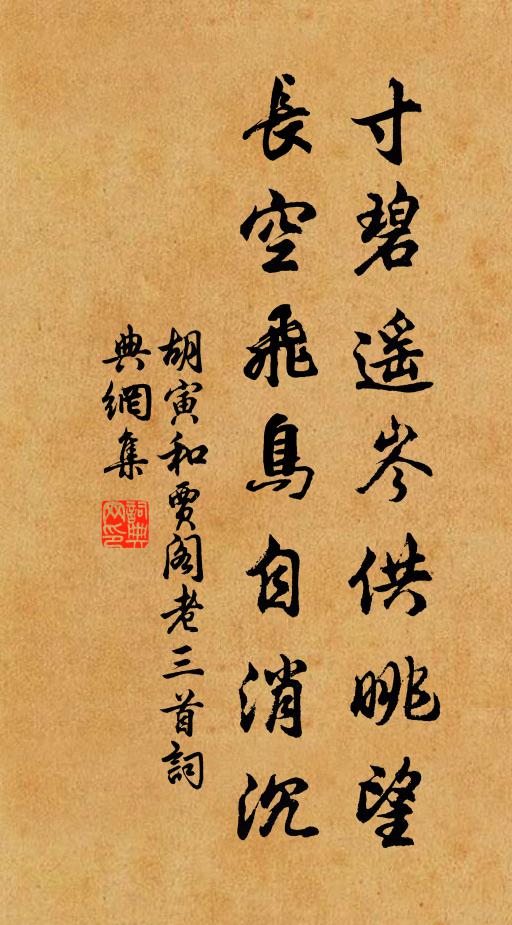 寸碧遥岑供眺望
長空飛鳥自消沉
胡寅和賈阁老三首詞
典網集
詞典
网印